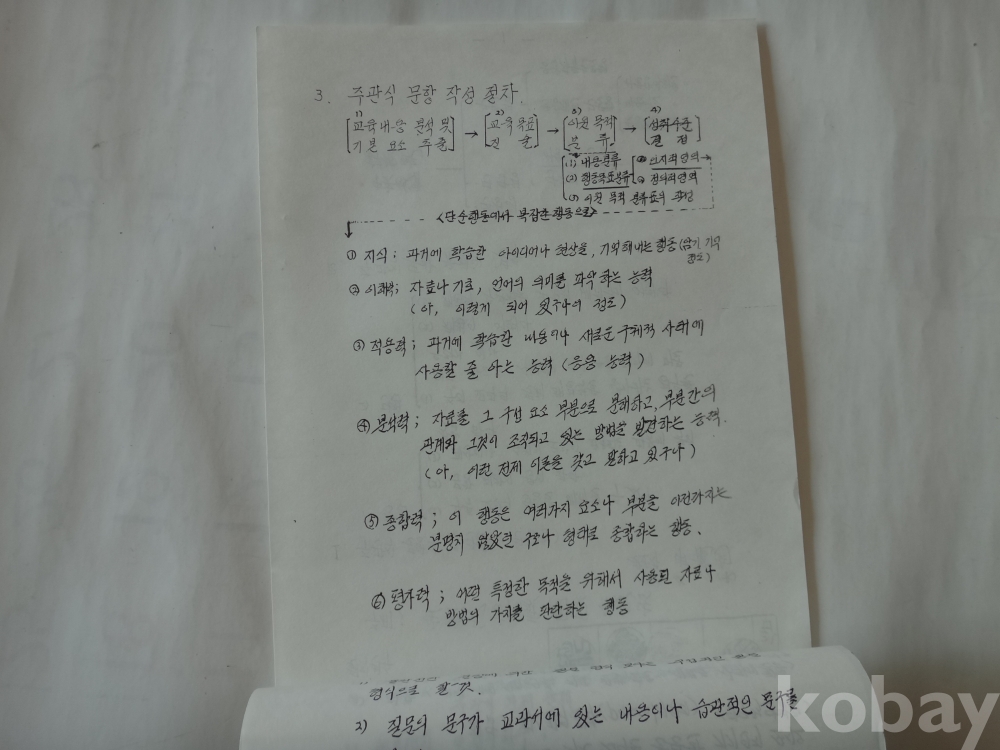 3. 주관식 문항 작성 절차.
1) 2) 3) 4)
[교육내용 분석 및 → [교육목표 → [이원목적 → [성취수준
기본 요소 추출] 진술] 분류.] 결정]
(1) 내용분류 ㉮ 인지적영역→
(2) 행동목표분류 ㉯ 정의적영역
(3) 이원 목적 분류표의 작성
<단순행동에서 복잡한 행동으로>
① 지식; 과거에 학습한 아이디어나 현상을, 기억해내는 행동(암기 기억
정도)
② 이해력; 자료나 기호, 언어의 의미를 파악하는 능력
(아, 이렇게 되어 있구나의 정도)
③ 적용력; 과거에 학습한 내용이나 새로운 구체적 사태에
사용할 줄 아는 능력 (응용 능력)
④ 분석력; 자료를 그 구성 요소 부분으로 분해하고, 부분간의
관계와 그것이 조직되고 있는 방법을 발견하는 능력.
(아, 이런 전제 이론을 갖고 말하고 있구나)
⑤ 종합력; 이 행동은 여러가지 요소나 부분을 이전까지는
분명치 않았던 구조나 형태로 종합하는 행동.
⑥ 평가력; 어떤 특정한 목적을 위해서 사용된 자료나
방법의 가치를 판단하는 행동
형식으로 할 것.
2) 질문의 문구가 교과서에 있는 내용이나 습관적인 문구를
kobay